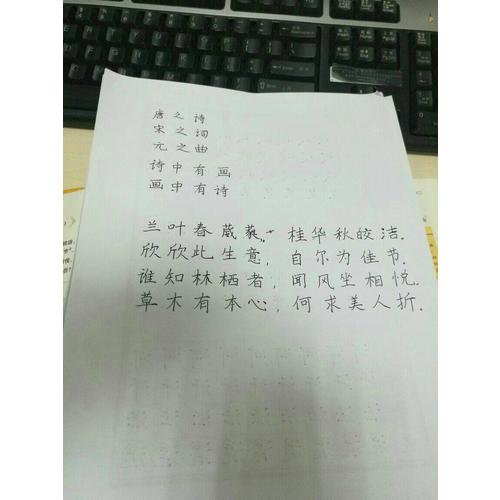 唐之诗
宋之词
元之曲
诗中有画
画中有诗
兰叶春葳蕤，桂华秋皎洁.
欣欣此生意，自尔为佳节.
谁知林栖者，闻风坐相悦.
草木有本心，何求美人折.